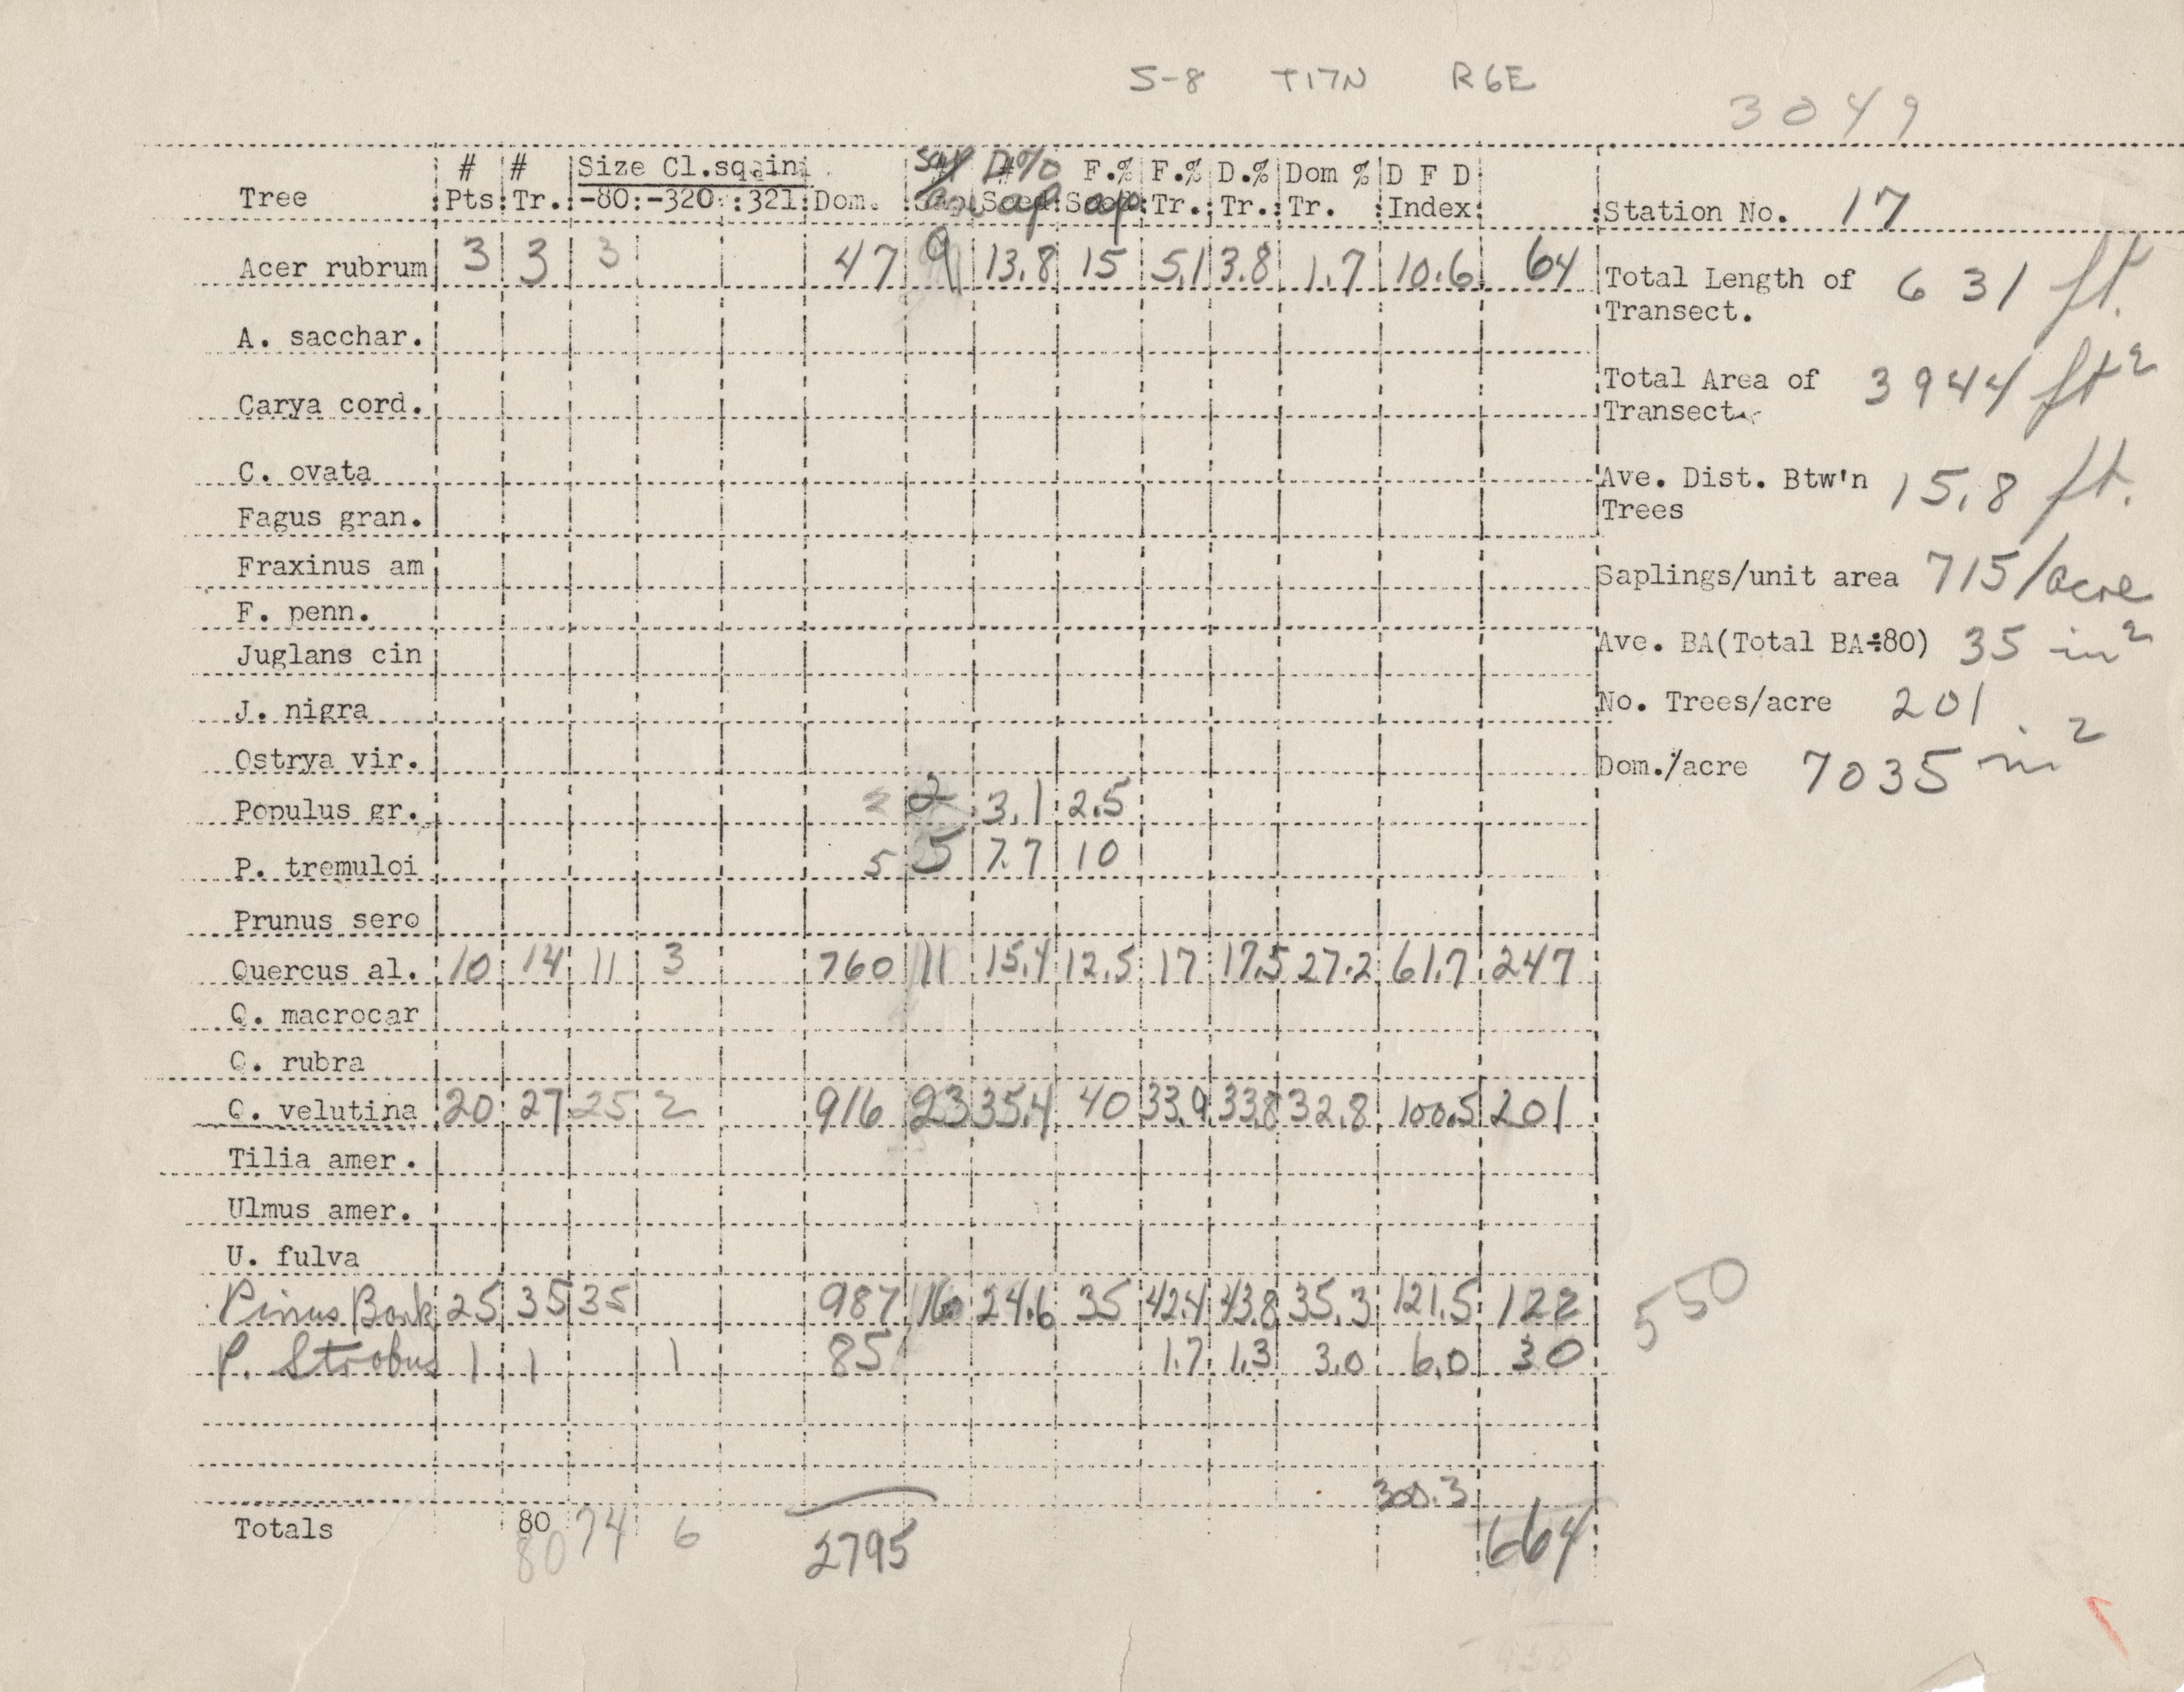 S-8 T17N R6E
3049
# # Size Cl.sq.in. D% F.% F.% D.% Dom % D F D
Tree Pts. Tr. -80: -320: :321: Dom. Sap. Sap Sap Tr. Tr. Tr. Index
Station No. 17
Acer rubrum 3 3 3 47 9 13.8 15 5.1 3.8 1.7 10.6 64
Total Length of Transect. 631 ft.
A. sacchar.
Total Area of Transect. 3944 ft2
Carya cord.
C. ovata
Ave. Dist. Btw'n Trees 15.8 ft.
Fagus gran.
Fraxinus am
Saplings/unit area 715/acre
F. penn.
Juglans cin
Ave. BA(Total BA÷80) 35 in2
J. nigra
No. Trees/acre 201
Ostrya vir.
Dom./acre 7035 in2
Populus gr. 2 2 3.1 2.5
P. tremuloi 5 5 7.7 10
Prunus sero
Quercus al. 10 14 11 3 760 11 15.4 12.5 17 17.5 27.2 61.7 247
Q. macrocar
Q. rubra
Q. velutina 20 27 25 2 916 23 35.4 40 33.9 33.8 32.8 100.5 201
Tilia amer.
Ulmus amer.
U. fulva
Pinus Bank 25 35 35 987 16 24.6 35 42.4 43.8 35.3 121.5 122
550
P. Strobus 1 1 1 85 1.7 1.3 3.0 6.0 30
300.3
Totals 80 74 6 2795 664
80